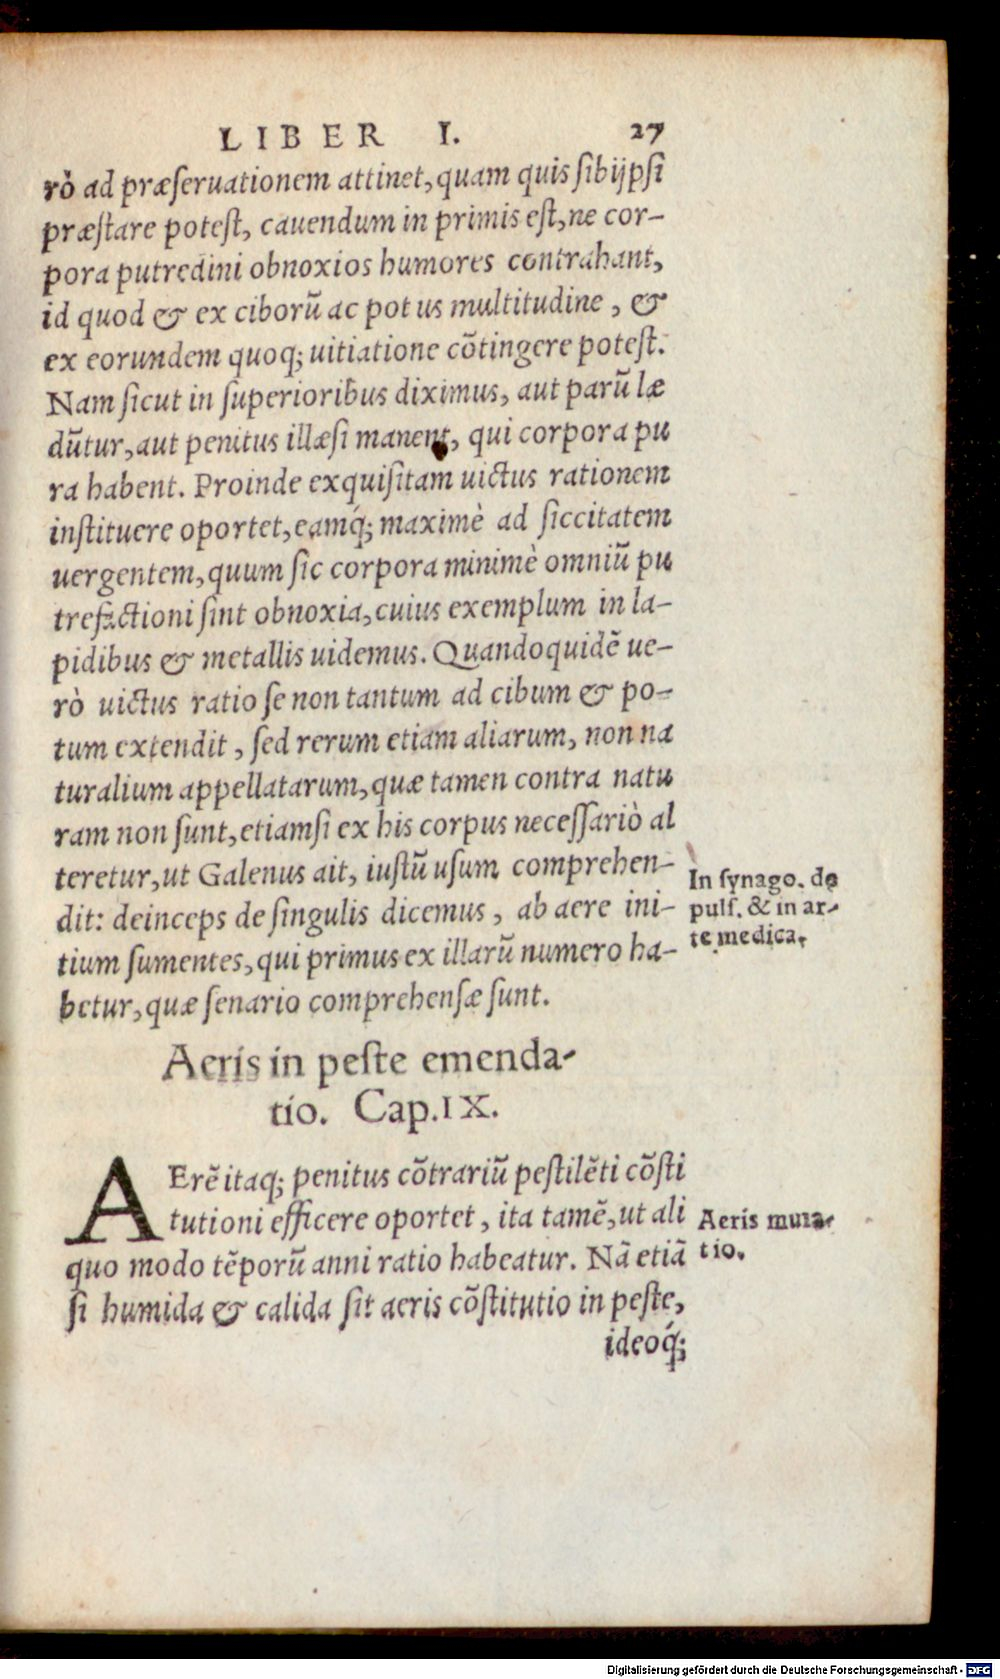 LIBER I. 27
rò ad præſeruationem attinet, quam quis ſibijpſi
præſtare poteſt, cauendum in primis eſt, ne cor-
pora putredini obnoxios humores contrahant,
id quod & ex ciborũ ac potus multitudine, &
ex eorundem quoq; uitiatione cõtingere poteſt.
Nam ſicut in ſuperioribus diximus, aut parũ læ
dũtur, aut penitus illæſi manent, qui corpora pu
ra habent. Proinde exquiſitam uictus rationem
inſtituere oportet, eamq́; maximè ad ſiccitatem
uergentem, quum ſic corpora minimè omniũ pu
trefactioni ſint obnoxia, cuius exemplum in la-
pidibus & metallis uidemus. Quandoquidẽ ue-
rò uictus ratio ſe non tantum ad cibum & po-
tum extendit, ſed rerum etiam aliarum, non na
turalium appellatarum, quæ tamen contra natu
ram non ſunt, etiamſi ex his corpus neceſſariò al
teretur, ut Galenus ait, iuſtũ uſum comprehen-
dit: deinceps de ſingulis dicemus, ab aere ini-
tium ſumentes, qui primus ex illarũ numero ha-
betur, quæ ſenario comprehenſæ ſunt.
In ſynago. de
pulſ. & in ar-
te medica.
Aeris in peſte emenda-
tio. Cap. IX.
AErẽ itaq; penitus cõtrariũ peſtilẽti cõſti
tutioni efficere oportet, ita tamẽ, ut ali
quo modo tẽporũ anni ratio habeatur. Nã etiã
ſi humida & calida ſit aeris cõſtitutio in peſte,
ideoq́;
Aeris muta-
tio.
Digitalisierung gefördert durch die Deutsche Forschungsgemeinschaft - DFG